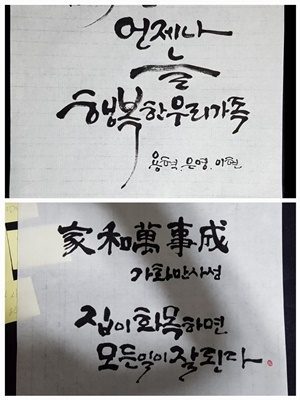 언제나
늘
행복한우리가족
용혁.은영.아현
家和萬事成
가화만사성
집이 화목하면
모든일이 잘 된다.